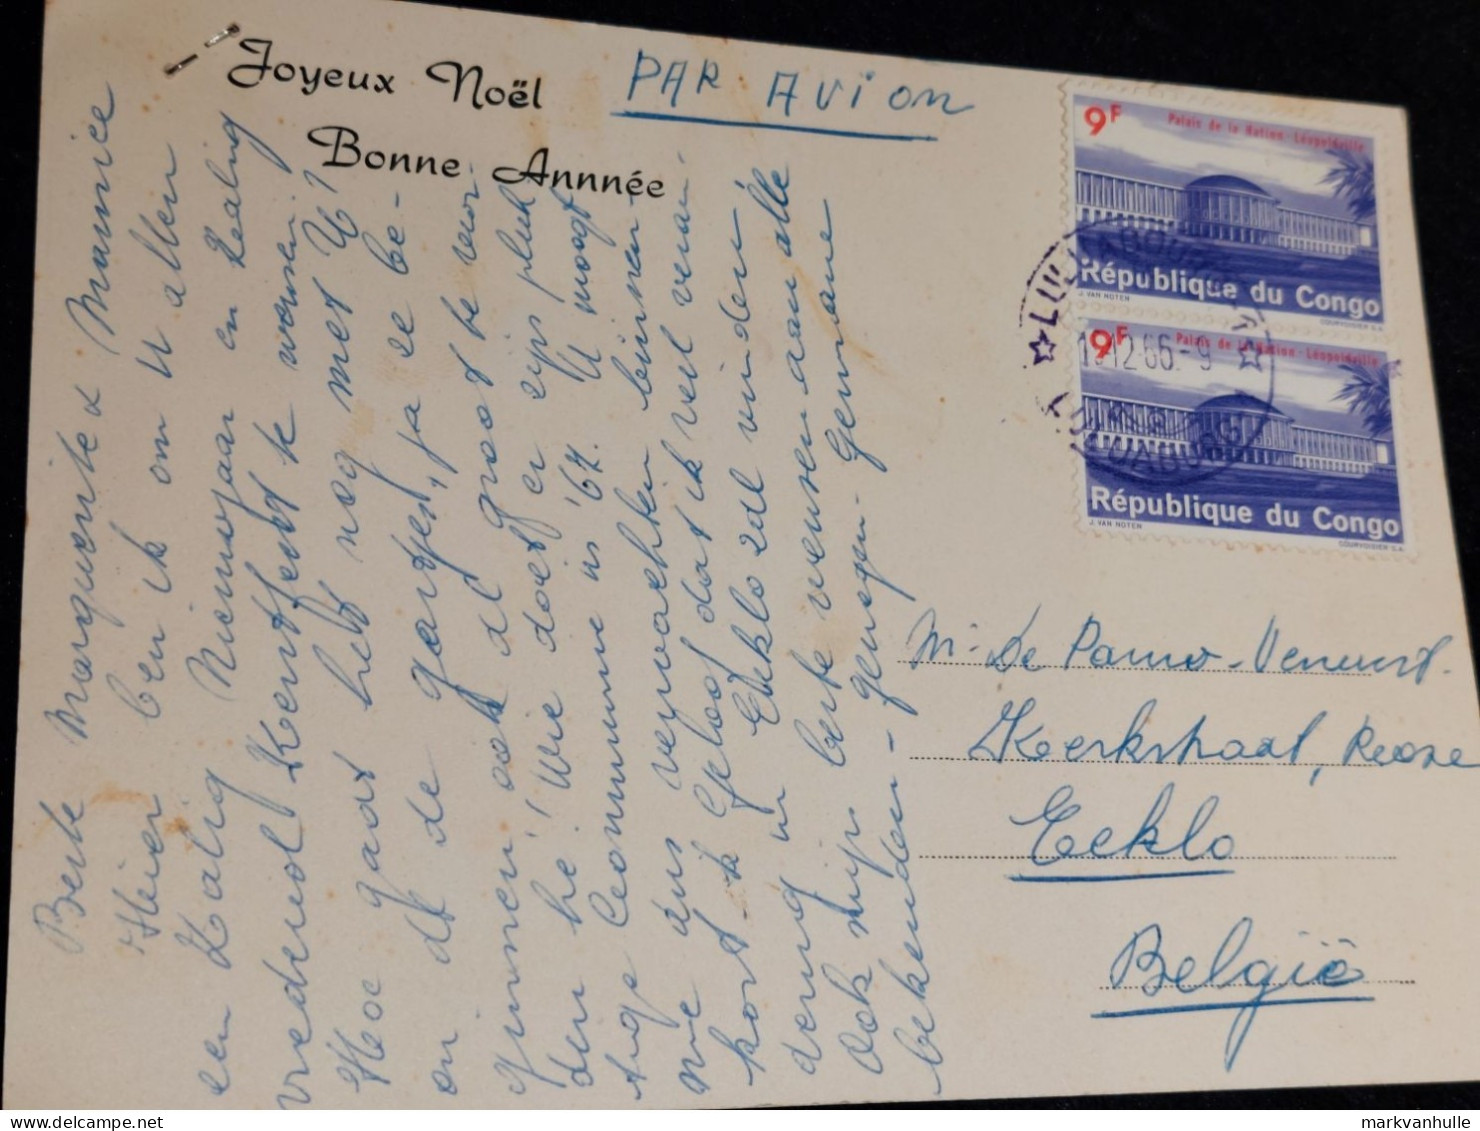 Joyeux Noël
Bonne Annnée
PAR AVION
9F
Palais de la Nation - Léopoldville
République du Congo
J. VAN NOTEN
COURVOISIER S.A.
9F
Palais de la Nation - Léopoldville
République du Congo
J. VAN NOTEN
COURVOISIER S.A.
12-66-9
Beste Marguerite & Maurice
ben ik om U allen
een Zalig Niemojaar en Zalig
vredevol Kerstfeest te wensen.
Hoe gaat het nog met U?
en de ja ze be-
ginnen ook al groot te wor-
den hé! Wie doet er zijn
Communie in '67. U moogt
me dus verwachten binnen
kort. Geloof dat ik veel veran-
dering in Eeklo zal vinden
Ook mijn beste wensen aan alle
bekenden - genegen. Germane
Mr De Pauw-Vervust.
Kerkstraat,
Eeklo
België
markvanhulle